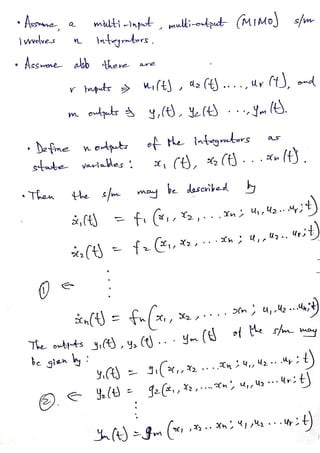 • Assume, a multi-input, multi-output (MIMO) s/m
involves n integrators.
• Assume also there are
r inputs ⇒ u₁(t), u₂(t) ...., uᵣ(t), and
m outputs ⇒ y₁(t), y₂(t) ...., yₘ(t).
• Define n outputs of the integrators as
state variables : x₁(t), x₂(t) ... xₙ(t).
• Then the s/m may be described by
ẋ₁(t) = f₁(x₁, x₂, ... xn ; u₁, u₂ ... uᵣ; t)
ẋ₂(t) = f₂(x₁, x₂, ... xn ; u₁, u₂ .. uᵣ; t)
① ←
ẋₙ(t) = fₙ(x₁, x₂, .... xn ; u₁, u₂ ... uᵣ; t)
The outputs y₁(t), y₂(t) ... yₘ(t) of the s/m may
be given by :
y₁(t) = g₁(x₁, x₂ ... xn ; u₁, u₂ ... uᵣ : t)
② ← y₂(t) = g₂(x₁, x₂, ... xn ; u₁, u₂ ... uᵣ : t)
yₘ(t) = gₘ(x₁, x₂ .. xn ; u₁, u₂ ... uᵣ : t)